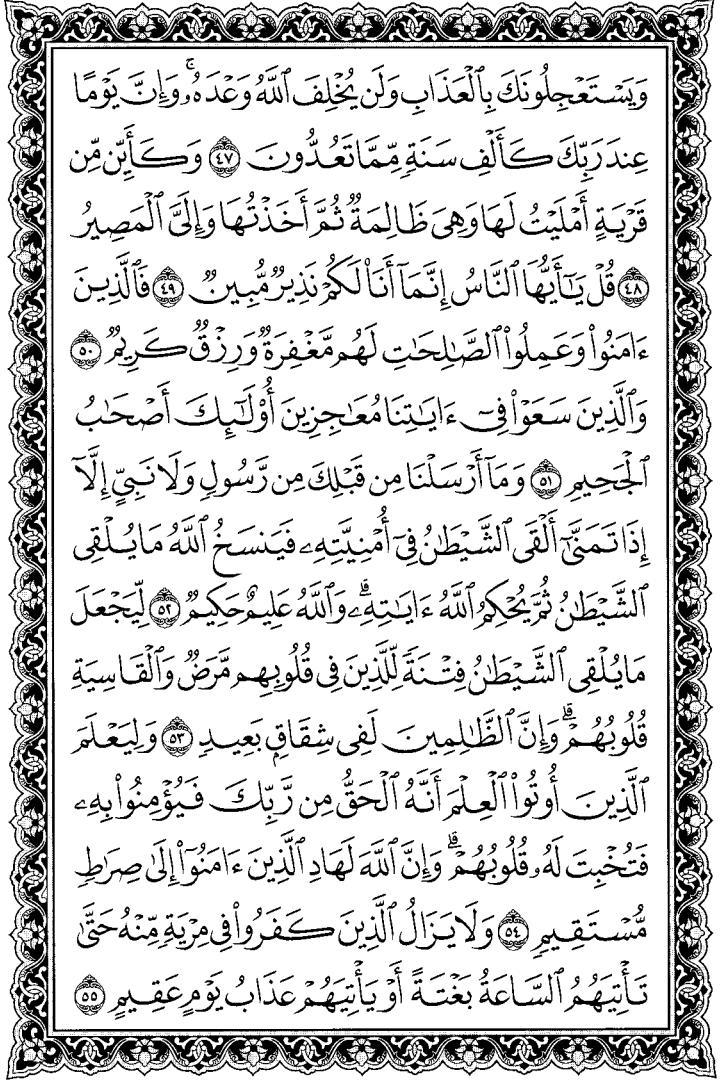 وَيَسْتَعْجِلُونَكَ بِٱلْعَذَابِ وَلَن يُخْلِفَ ٱللَّهُ وَعْدَهُۥۚ وَإِنَّ يَوْمًا
عِندَ رَبِّكَ كَأَلْفِ سَنَةٍ مِّمَّا تَعُدُّونَ ٤٧ وَكَأَيِّن مِّن
قَرْيَةٍ أَمْلَيْتُ لَهَا وَهِىَ ظَالِمَةٌ ثُمَّ أَخَذْتُهَا وَإِلَىَّ ٱلْمَصِيرُ
٤٨ قُلْ يَٰٓأَيُّهَا ٱلنَّاسُ إِنَّمَآ أَنَا۠ لَكُمْ نَذِيرٌ مُّبِينٌ ٤٩ فَٱلَّذِينَ
ءَامَنُوا۟ وَعَمِلُوا۟ ٱلصَّٰلِحَٰتِ لَهُم مَّغْفِرَةٌ وَرِزْقٌ كَرِيمٌ ٥٠
وَٱلَّذِينَ سَعَوْا۟ فِىٓ ءَايَٰتِنَا مُعَٰجِزِينَ أُو۟لَٰٓئِكَ أَصْحَٰبُ
ٱلْجَحِيمِ ٥١ وَمَآ أَرْسَلْنَا مِن قَبْلِكَ مِن رَّسُولٍ وَلَا نَبِىٍّ إِلَّآ
إِذَا تَمَنَّىٰٓ أَلْقَى ٱلشَّيْطَٰنُ فِىٓ أُمْنِيَّتِهِۦ فَيَنسَخُ ٱللَّهُ مَا يُلْقِى
ٱلشَّيْطَٰنُ ثُمَّ يُحْكِمُ ٱللَّهُ ءَايَٰتِهِۦۗ وَٱللَّهُ عَلِيمٌ حَكِيمٌ ٥٢ لِّيَجْعَلَ
مَا يُلْقِى ٱلشَّيْطَٰنُ فِتْنَةً لِّلَّذِينَ فِى قُلُوبِهِم مَّرَضٌ وَٱلْقَاسِيَةِ
قُلُوبُهُمْۗ وَإِنَّ ٱلظَّٰلِمِينَ لَفِى شِقَاقٍۭ بَعِيدٍ ٥٣ وَلِيَعْلَمَ
ٱلَّذِينَ أُوتُوا۟ ٱلْعِلْمَ أَنَّهُ ٱلْحَقُّ مِن رَّبِّكَ فَيُؤْمِنُوا۟ بِهِۦ
فَتُخْبِتَ لَهُۥ قُلُوبُهُمْۗ وَإِنَّ ٱللَّهَ لَهَادِ ٱلَّذِينَ ءَامَنُوٓا۟ إِلَىٰ صِرَٰطٍ
مُّسْتَقِيمٍ ٥٤ وَلَا يَزَالُ ٱلَّذِينَ كَفَرُوا۟ فِى مِرْيَةٍ مِّنْهُ حَتَّىٰ
تَأْتِيَهُمُ ٱلسَّاعَةُ بَغْتَةً أَوْ يَأْتِيَهُمْ عَذَابُ يَوْمٍ عَقِيمٍ ٥٥